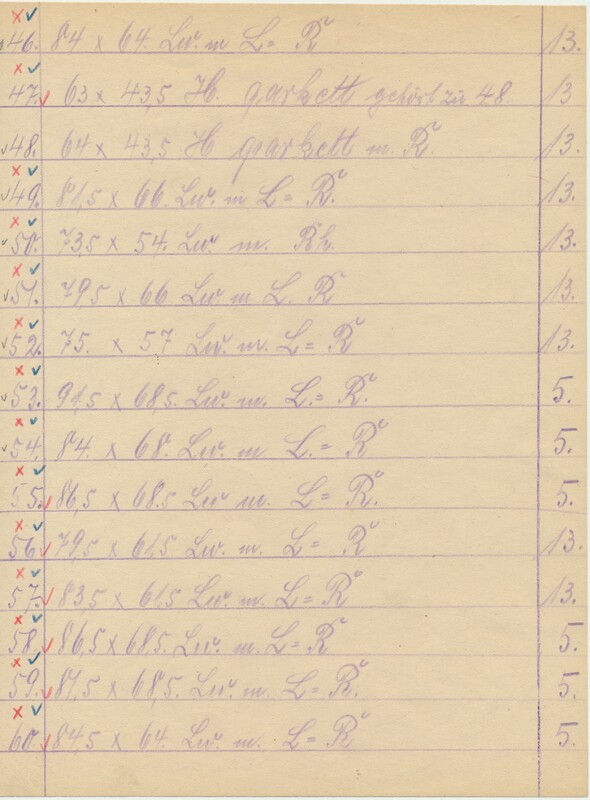 46. 84 x 64. Lw. m L = R 13.
47. 63 x 43,5 H. parkett gehört zu 48. 13
48. 64 x 43,5 H parkett m. R. 13.
49. 81,5 x 66. Lw. m L = R. 13.
50. 73,5 x 54. Lw. m. Rh. 13.
51. 79,5 x 66 Lw m L. R 13.
52. 75. x 57 Lw. m. L = R 13.
53. 91,5 x 68,5. Lw. m. L. = R. 5.
54. 84. x 68. Lw. m L. = R 5.
55. 86,5 x 68,5 Lw. m. L = R. 5.
56. 79,5 x 61,5 Lw. m. L = R 13.
57. 83,5 x 61,5 Lw. m. L = R 13.
58. 86,5 x 68,5. Lw. m. L = R 5.
59. 87,5 x 68,5. Lw. m. L = R. 5.
60. 84,5 x 64. Lw. m. L = R 5.